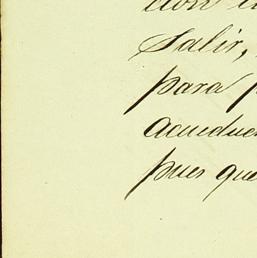 Salir,
para
acuedu
pues que